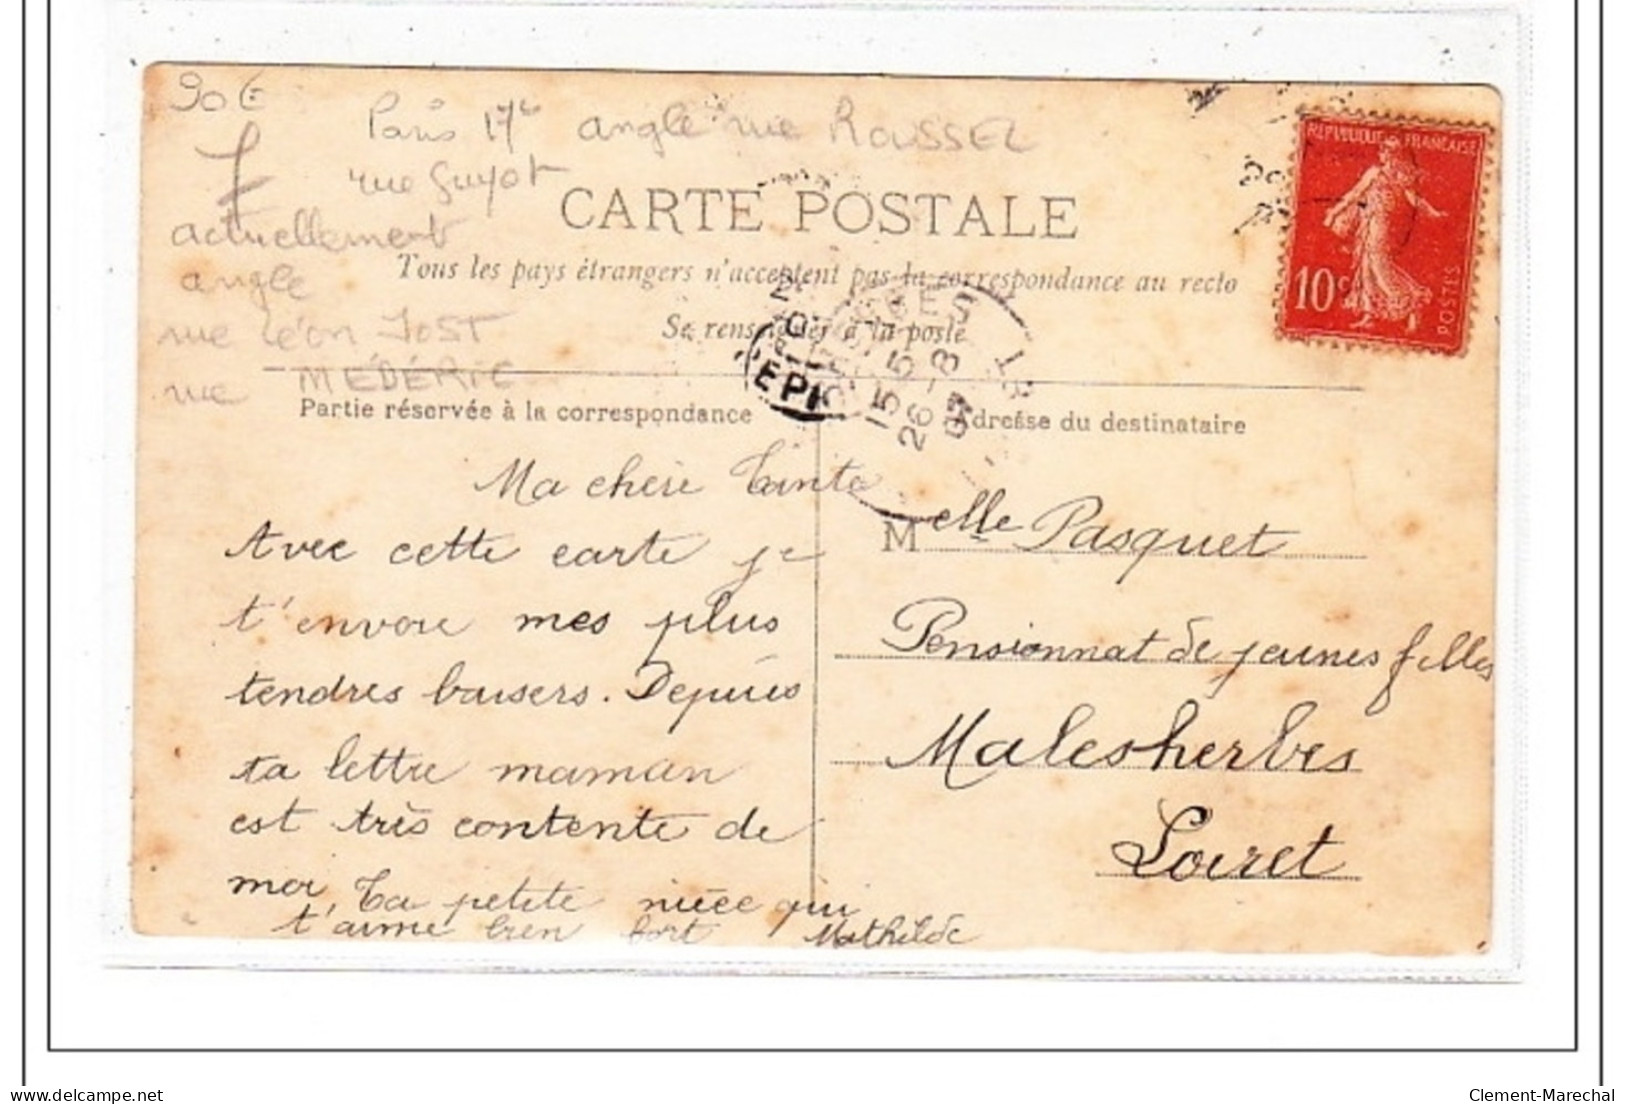 90€
Paris 17e angle rue ROUSSEL
rue Guyot
actuellement
angle
rue Léon JOST
rue MÉDÉRIC
REPUBLIQUE FRANÇAISE
10c
POSTES
CARTE POSTALE
Tous les pays étrangers n'acceptent pas la correspondance au recto
Se renseigner à la poste
Partie réservée à la correspondance
Adresse du destinataire
15 5
26-8
07
Ma chère Tante
Avec cette carte je
t'envoie mes plus
tendres baisers. Depuis
ta lettre maman
est très contente de
moi, Ta petite nièce qui
t'aime bien fort Mathilde
Melle Pasquet
Pensionnat de jeunes filles
Malesherbes
Loiret
delcampe.net
Clement-Marechal